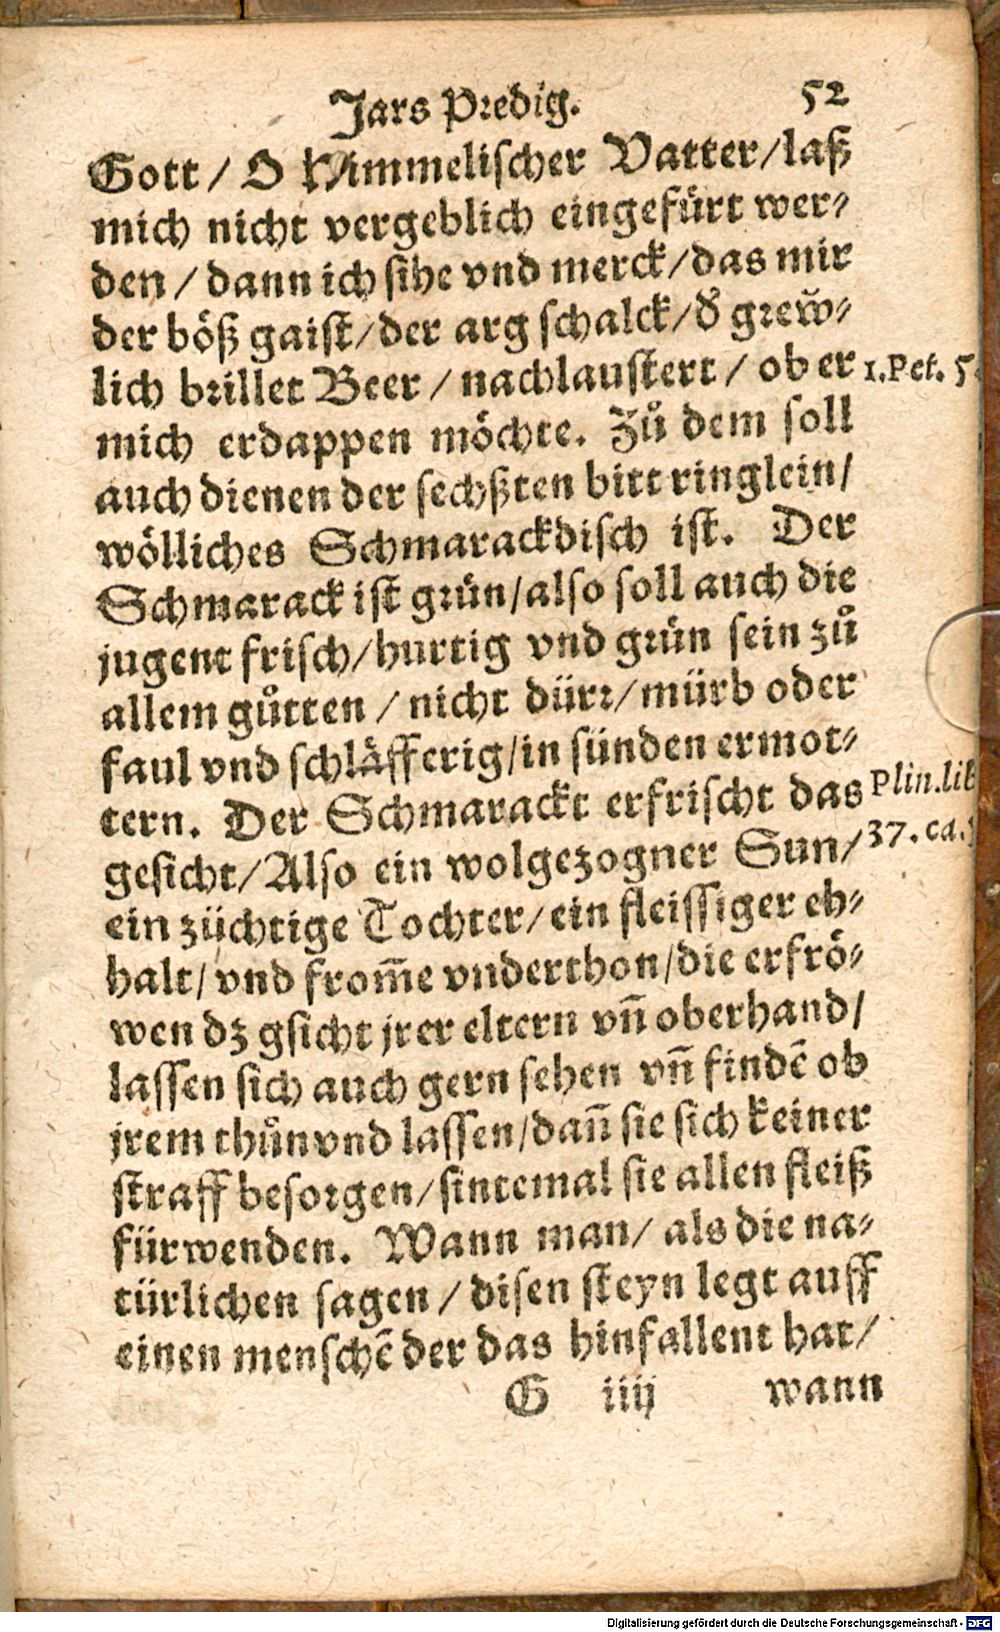 Jars Predig. 52
Gott / O Himmelischer Vatter/laß
mich nicht vergeblich eingefürt wer⸗
den / dann ich sihe vnd merck/das mir
der böß gaist/der arg schalck/d̛ grew̆⸗
lich brillet Beer / nachlaustert / ob er 1.Pet. 5.
mich erdappen möchte. Zů dem soll
auch dienen der sechßten bitt ringlein/
wölliches Schmarackdisch ist. Der
Schmarack ist grün/also soll auch die
jugent frisch/hurtig vnd grün sein zů
allem gůtten / nicht dürr/mürb oder
faul vnd schläfferig/in sünden ermot⸗
tern. Der Schmarackt erfrischt das Plin.lib
gesicht/Also ein wolgezogner Sun/ 37. ca.
ein züchtige Tochter/ein fleissiger eh⸗
halt/vnd from̅e vnderthon/die erfrö⸗
wen dz gsicht jrer eltern vn̅ oberhand/
lassen sich auch gern sehen vn̅ findē ob
jrem thůn vnd lassen/dan̅ sie sich keiner
straff besorgen/sintemal sie allen fleiß
fürwenden. Wann man/ als die na⸗
türlichen sagen / disen steyn legt auff
einen menschē der das hinfallent hat/
G iiij wann
Digitalisierung gefördert durch die Deutsche Forschungsgemeinschaft - DFG